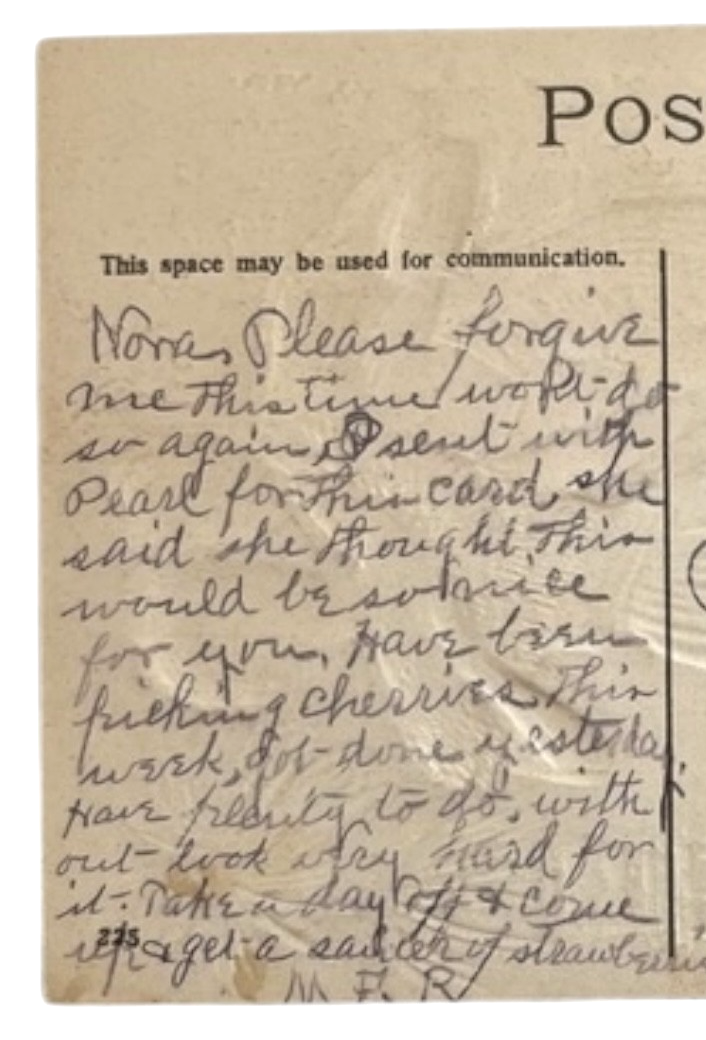 Pos
This space may be used for communication.
Nora, Please forgive
me this time won't do
so again, I sent with
Pearl for this card, she
said she thought this
would be so nice
for you. Have been
picking cherries this
week, got done yesterday.
Have plenty to do, with
out look very hard for
it. Take a day off & come
up & get a saucer of strawberries
225
M. F. R.